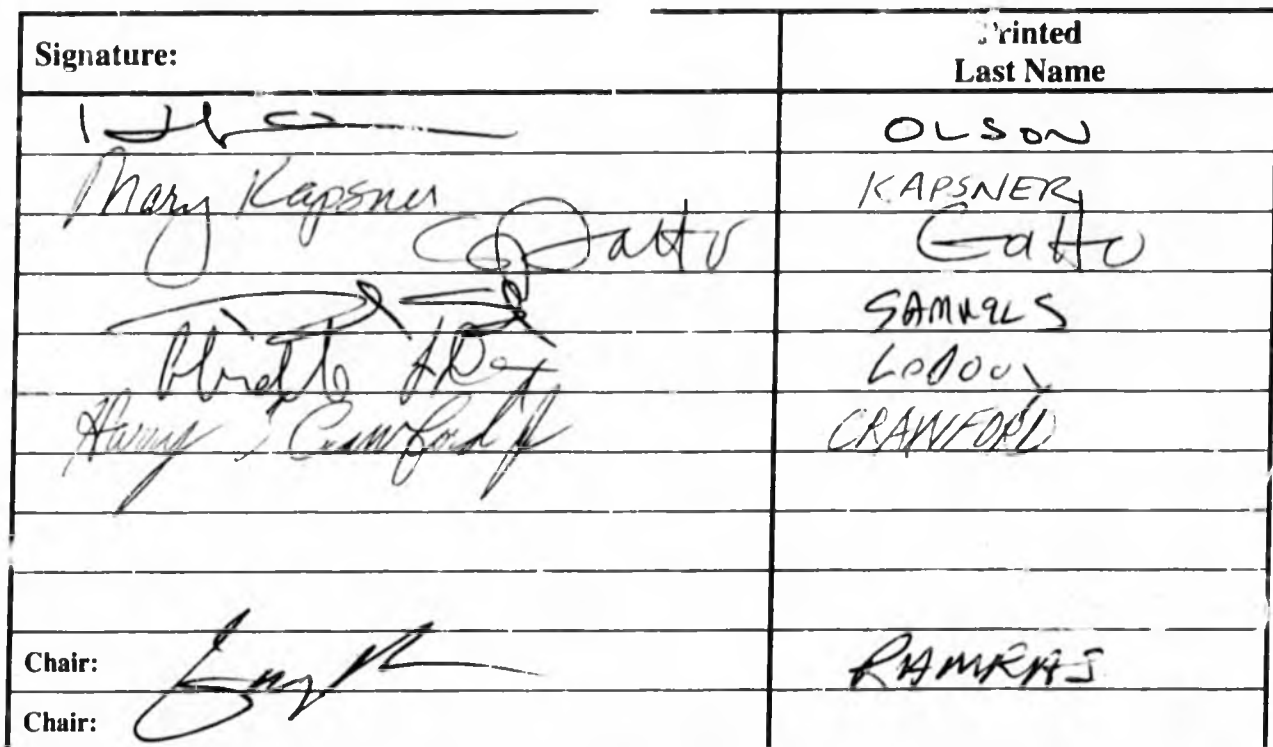 Signature: Printed Last Name
OLSON
Mary Kapsner KAPSNER
Gatto Gatto
SAMUELS
LeDoux
Harry Crawford Jr CRAWFORD
Chair: RAMRAS
Chair: